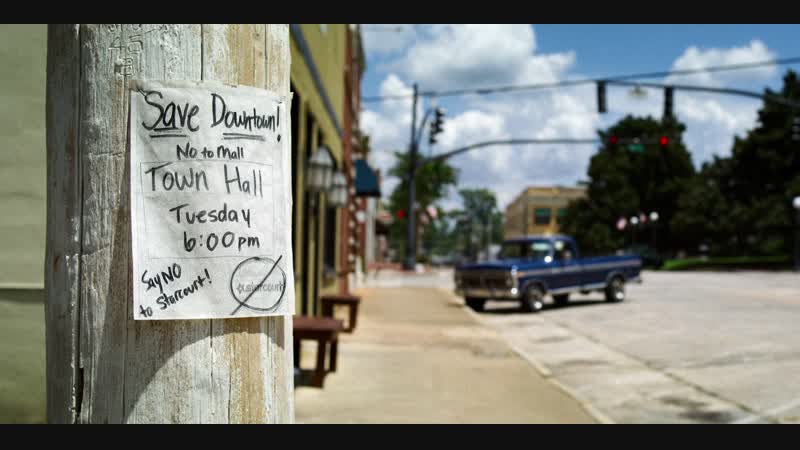 Save Downtown!
No to Mall
Town Hall
Tuesday
6:00pm
Say NO
to Starcourt!
starcourt